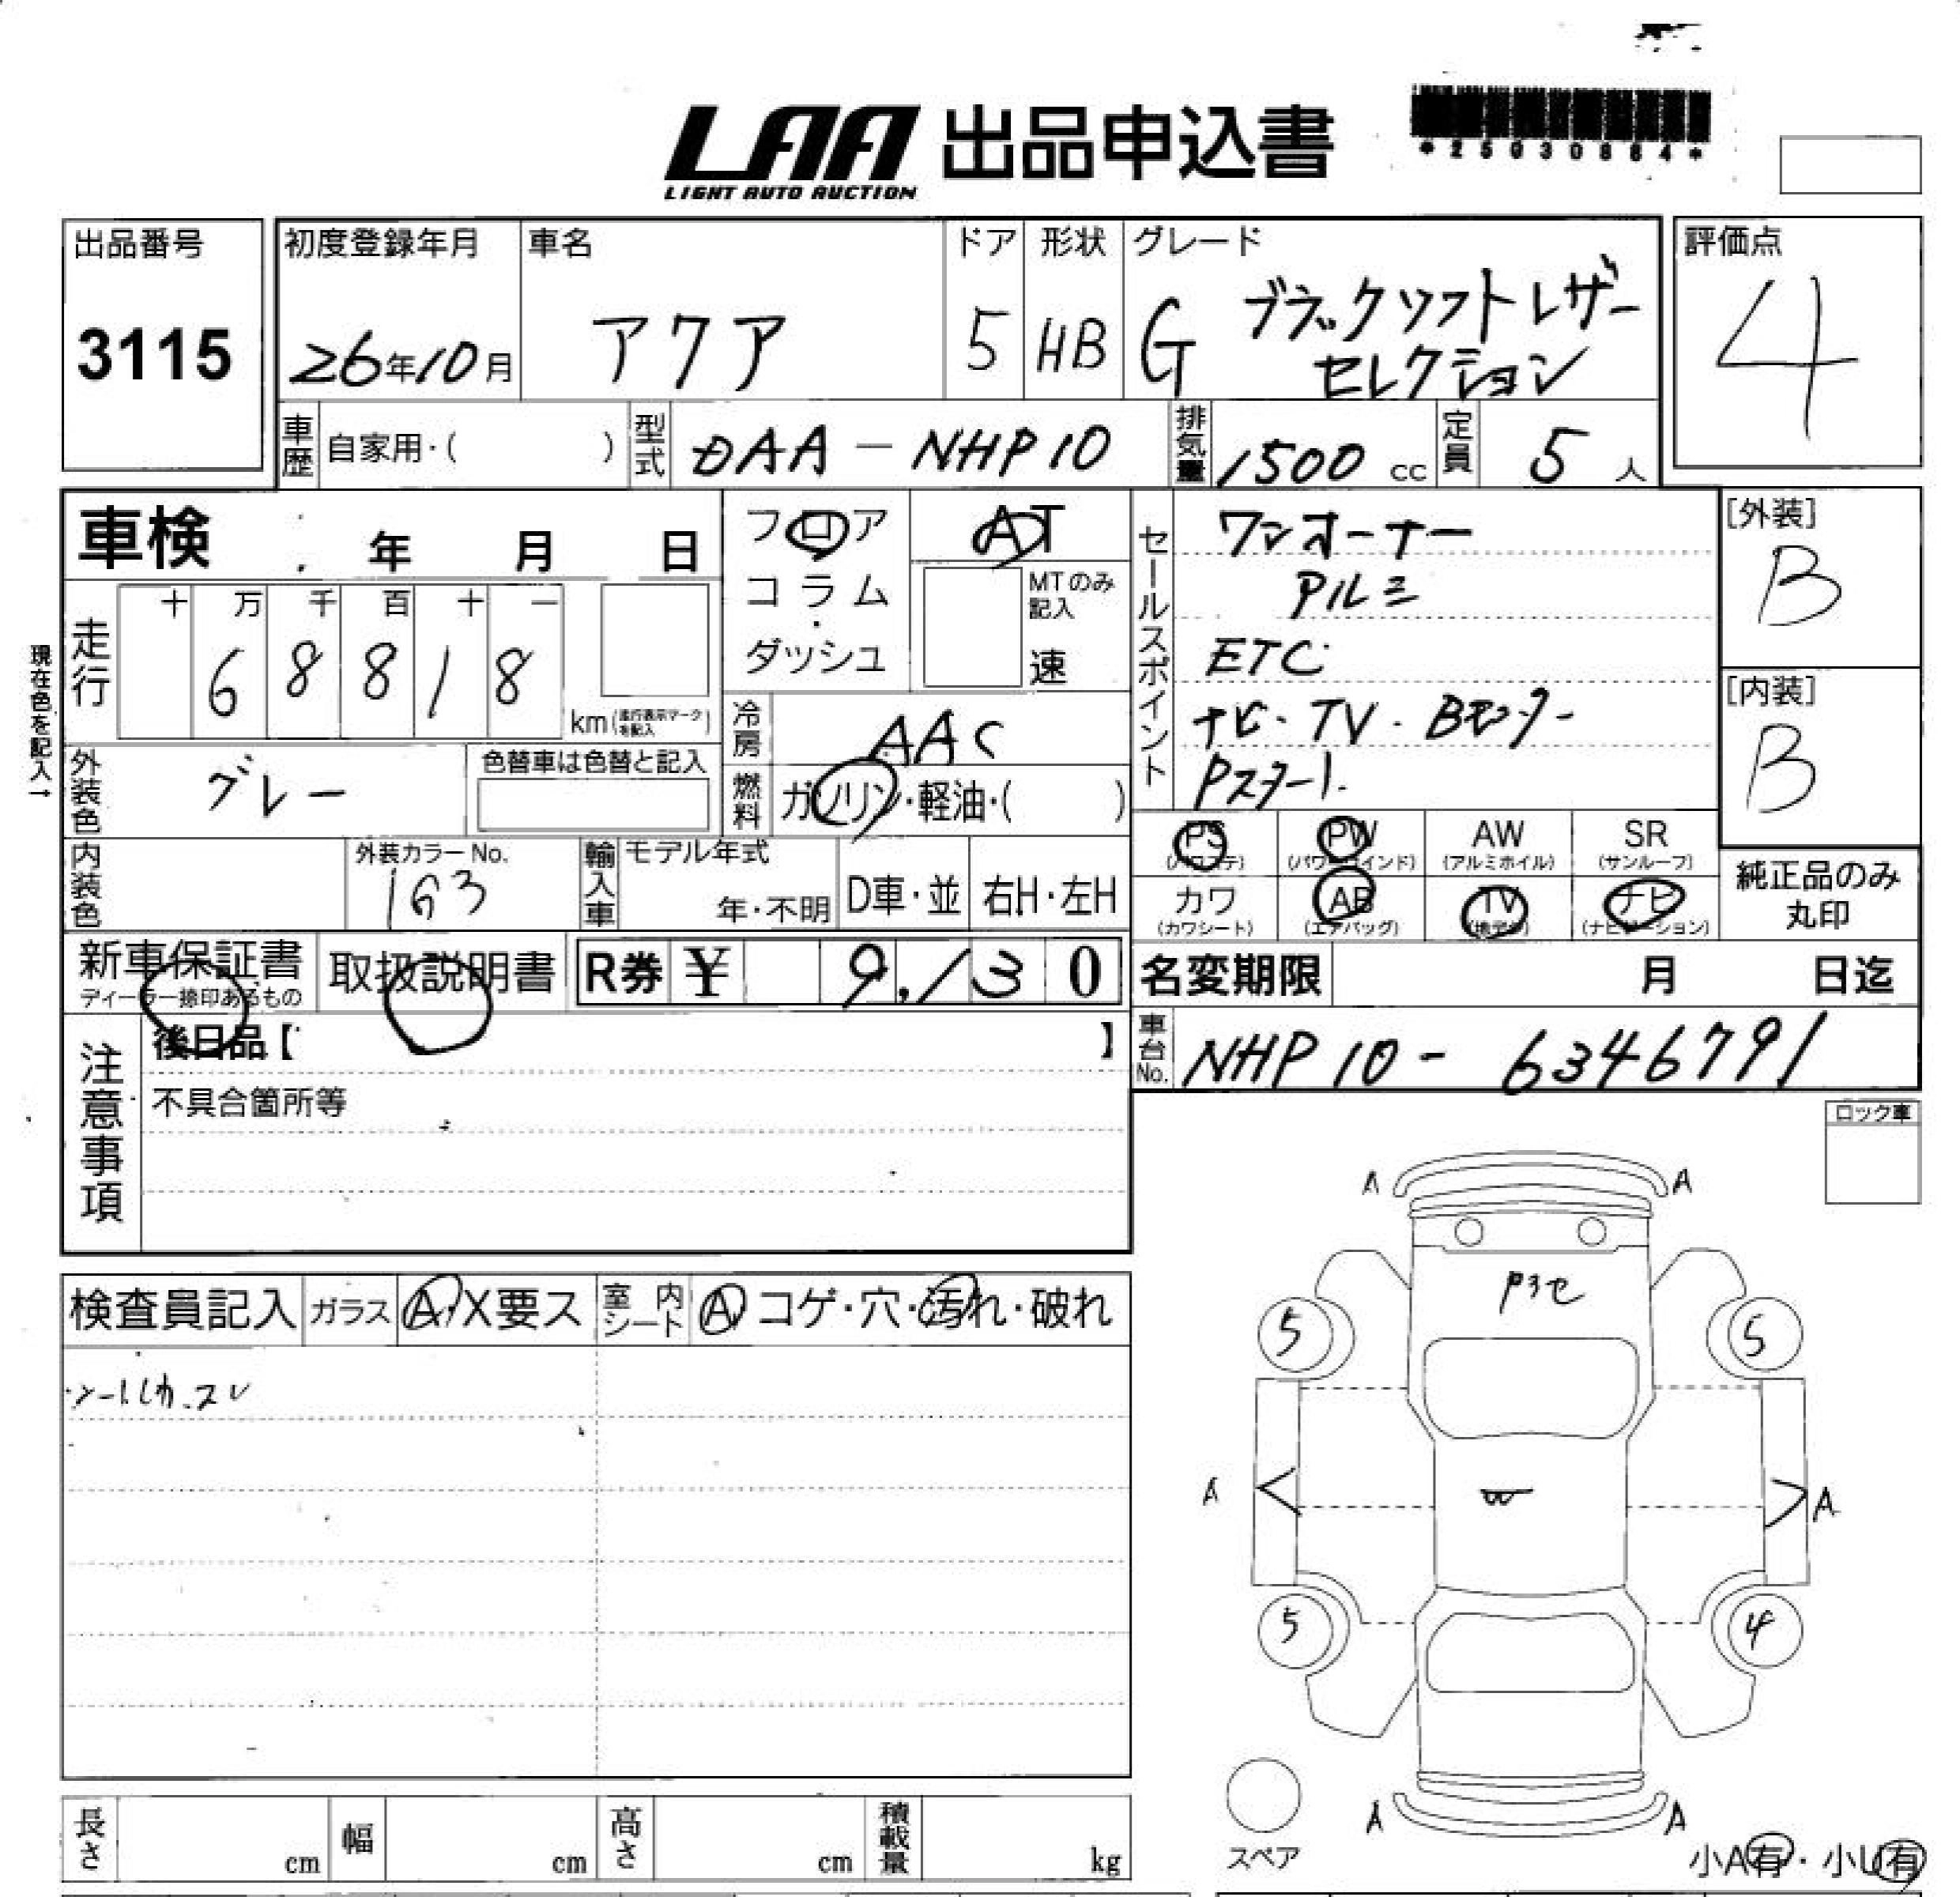 LAA 出品申込書
LIGHT AUTO AUCTION
*25030864*
出品番号
3115
初度登録年月
26年10月
車名
アクア
ドア
5
形状
HB
グレード
G ブラックソフトレザー
セレクション
評価点
4
車歴 自家用・( )
型式 DAA-NHP10
排気量 1500 cc
定員 5 人
車検 年 月 日
フロア
コラム
ダッシュ
AT
MTのみ
記入
速
セールスポイント
ワンオーナー
アルミ
ETC
ナビ・TV・Bモニター
Pスタート
[外装]
B
[内装]
B
現在色を記入→
走行
十 万 千 百 十 一
6 8 8 1 8
km(走行表示マークを記入)
冷房 AAC
燃料 ガソリン・軽油・( )
外装色 グレー
色替車は色替と記入
内装色
外装カラーNo.
163
輸入車
モデル年式
年・不明
D車・並
右H・左H
PS
(パワステ)
PW
(パワーウインド)
AW
(アルミホイル)
SR
(サンルーフ)
カワ
(カワシート)
AB
(エアバッグ)
TV
(地デジ)
ナビ
(ナビゲーション)
純正品のみ
丸印
新車保証書
ディーラー捺印あるもの
取扱説明書
R券 ¥ 9,130
名変期限 月 日迄
車台No. NHP10-6346791
注意事項
後日品【 】
不具合箇所等
ロック車
検査員記入
ガラス A・X要ス
室内シート A コゲ・穴・汚れ・破れ
A A
5 5
W
A A
5 4
A A
スペア
小A有・小U有
長さ cm
幅 cm
高さ cm
積載量 kg